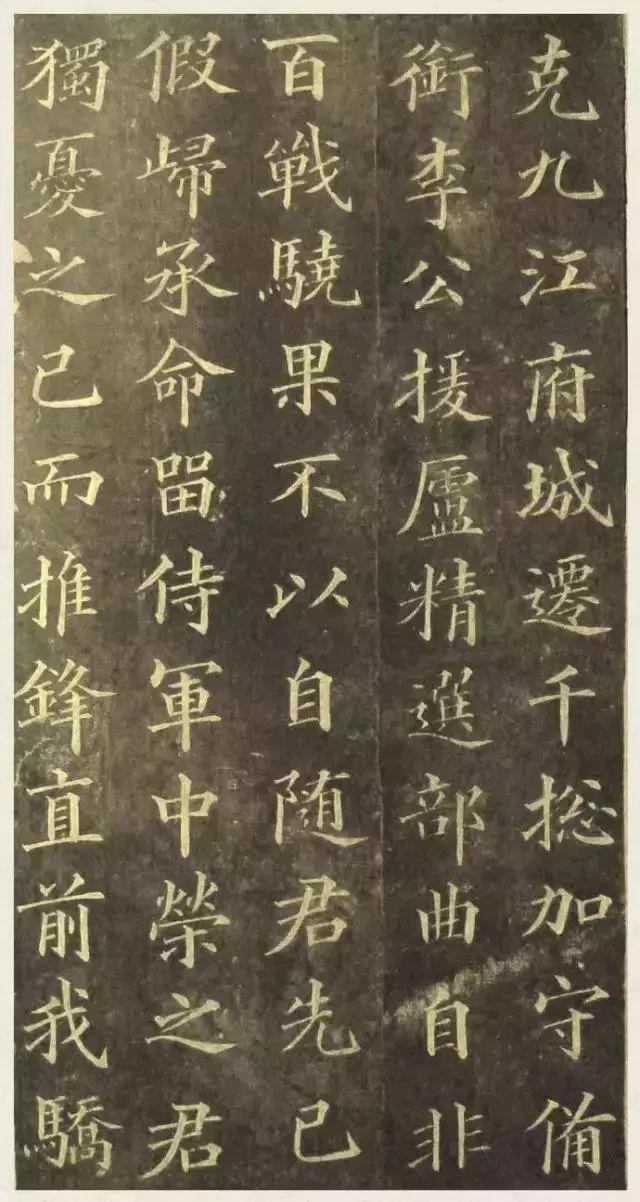 克九江府城遷千捴加守俻
銜李公援廬精選部曲自非
百戰驍果不以自随君先已
假歸承命畱侍軍中榮之君
獨憂之已而推鋒直前我驕